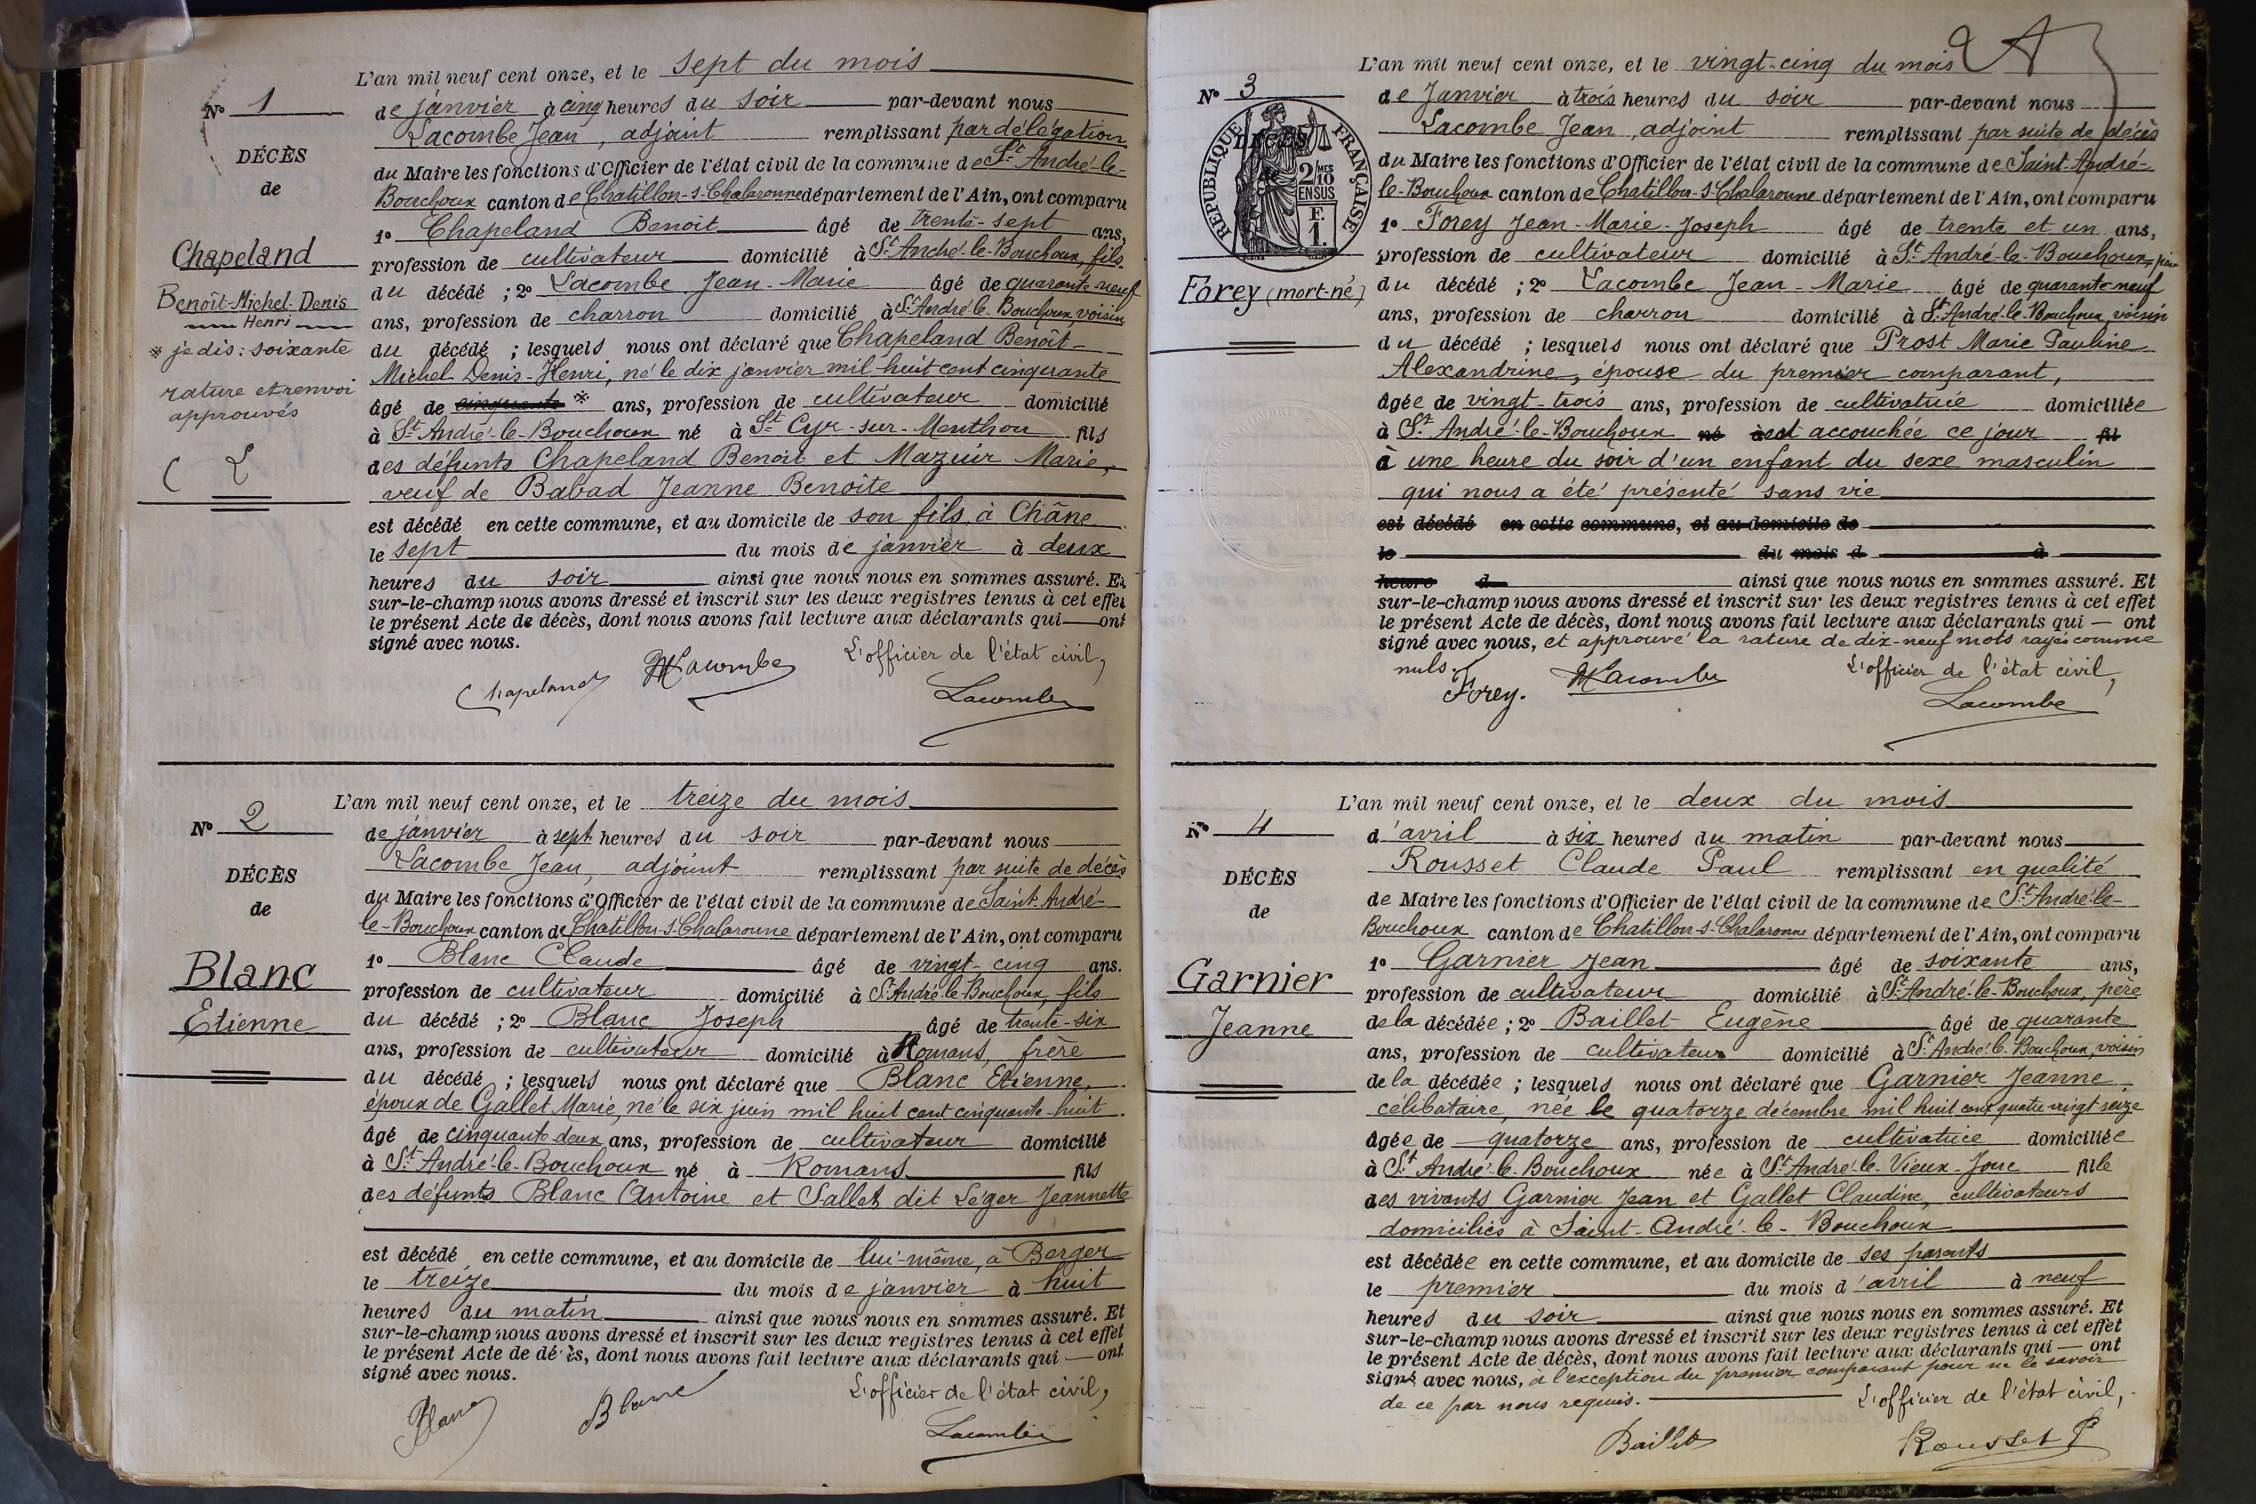 L'an mil neuf cent onze, et le sept du mois
N° 1
de janvier à cinq heures du soir par-devant nous
Lacombe Jean, adjoint remplissant par délégation
DÉCÈS
du Maire les fonctions d'Officier de l'état civil de la commune de St André-le-
de
Bouchoux canton de Chatillon-s-Chalaronne département de l'Ain, ont comparu
1° Chapeland Benoit âgé de trente-sept ans,
Chapeland
profession de cultivateur domicilié à St André-le-Bouchoux, fils
Benoît-Michel-Denis
du décédé ; 2° Lacombe Jean-Marie âgé de quarante-neuf
Henri
ans, profession de charron domicilié à St André-le-Bouchoux, voisin
※ je dis : soixante
du décédé ; lesquels nous ont déclaré que Chapeland Benoît-
Michel-Denis-Henri, né le dix janvier mil huit cent cinquante
rature et renvoi
approuvés
âgé de cinquante ※ ans, profession de cultivateur domicilié
à St André-le-Bouchoux né à St Cyr-sur-Menthon fils
L
des défunts Chapeland Benoit et Mazuir Marie,
veuf de Babad Jeanne Benoîte
est décédé en cette commune, et au domicile de son fils, à Châne
le sept du mois de janvier à deux
heures du soir ainsi que nous nous en sommes assuré. Et
sur-le-champ nous avons dressé et inscrit sur les deux registres tenus à cet effet
le présent Acte de décès, dont nous avons fait lecture aux déclarants qui — ont
signé avec nous.
L'officier de l'état civil,
Chapeland Lacombe Lacombe
L'an mil neuf cent onze, et le treize du mois
N° 2
de janvier à sept heures du soir par-devant nous
Lacombe Jean, adjoint remplissant par suite de décès
DÉCÈS
du Maire les fonctions d'Officier de l'état civil de la commune de Saint-André-
de
le-Bouchoux canton de Chatillon-s-Chalaronne département de l'Ain, ont comparu
1° Blanc Claude âgé de vingt-cinq ans.
Blanc
profession de cultivateur domicilié à St André-le-Bouchoux, fils
Etienne
du décédé ; 2° Blanc Joseph âgé de trente-six
ans, profession de cultivateur domicilié à Romans, frère
du décédé ; lesquels nous ont déclaré que Blanc Etienne,
époux de Gallet Marie, né le six juin mil huit cent cinquante-huit
âgé de cinquante-deux ans, profession de cultivateur domicilié
à St André-le-Bouchoux né à Romans fils
des défunts Blanc Antoine et Sallet dit Léger Jeannette
est décédé en cette commune, et au domicile de lui-même, à Berger
le treize du mois de janvier à huit
heures du matin ainsi que nous nous en sommes assuré. Et
sur-le-champ nous avons dressé et inscrit sur les deux registres tenus à cet effet
le présent Acte de décès, dont nous avons fait lecture aux déclarants qui — ont
signé avec nous.
L'officier de l'état civil,
Blanc Blanc Lacombe
L'an mil neuf cent onze, et le vingt-cinq du mois
N° 3
de Janvier à trois heures du soir par-devant nous
Lacombe Jean, adjoint remplissant par suite de décès
DÉCÈS
RÉPUBLIQUE FRANÇAISE
2/10 MES
EN SUS
1 F.
du Maire les fonctions d'Officier de l'état civil de la commune de Saint-André-
le-Bouchoux canton de Chatillon-s-Chalaronne département de l'Ain, ont comparu
1° Forey Jean-Marie-Joseph âgé de trente et un ans,
profession de cultivateur domicilié à St André-le-Bouchoux, père
Forey (mort-né)
du décédé ; 2° Lacombe Jean-Marie âgé de quarante-neuf
ans, profession de charron domicilié à St André-le-Bouchoux, voisin
du décédé ; lesquels nous ont déclaré que Prost Marie Pauline
Alexandrine, épouse du premier comparant,
âgée de vingt-trois ans, profession de cultivatrice domiciliée
à St André-le-Bouchoux né à est accouchée ce jour fil
à une heure du soir d'un enfant du sexe masculin
qui nous a été présenté sans vie
est décédé en cette commune, et au domicile de
le du mois d à
heure d ainsi que nous nous en sommes assuré. Et
sur-le-champ nous avons dressé et inscrit sur les deux registres tenus à cet effet
le présent Acte de décès, dont nous avons fait lecture aux déclarants qui — ont
signé avec nous, et approuvé la rature de dix-neuf mots rayés comme
nuls.
L'officier de l'état civil,
Forey. Lacombe Lacombe
L'an mil neuf cent onze, et le deux du mois
N° 4
d'avril à six heures du matin par-devant nous
Rousset Claude Paul remplissant en qualité
DÉCÈS
de Maire les fonctions d'Officier de l'état civil de la commune de St André-le-
de
Bouchoux canton de Chatillon-s-Chalaronne département de l'Ain, ont comparu
1° Garnier Jean âgé de soixante ans,
Garnier
profession de cultivateur domicilié à St André-le-Bouchoux, père
Jeanne
de la décédée ; 2° Baillet Eugène âgé de quarante
ans, profession de cultivateur domicilié à St André-le-Bouchoux, voisin
de la décédée ; lesquels nous ont déclaré que Garnier Jeanne
célibataire, née le quatorze décembre mil huit cent quatre vingt seize
âgée de quatorze ans, profession de cultivatrice domiciliée
à St André-le-Bouchoux née à St André-le-Vieux-Jonc fille
des vivants Garnier Jean et Gallet Claudine, cultivateurs
domiciliés à Saint-André-le-Bouchoux
est décédée en cette commune, et au domicile de ses parents
le premier du mois d'avril à neuf
heures du soir ainsi que nous nous en sommes assuré. Et
sur-le-champ nous avons dressé et inscrit sur les deux registres tenus à cet effet
le présent Acte de décès, dont nous avons fait lecture aux déclarants qui — ont
signé avec nous, à l'exception du premier comparant pour ne le savoir
de ce par nous requis.
L'officier de l'état civil,
Baillet Rousset P